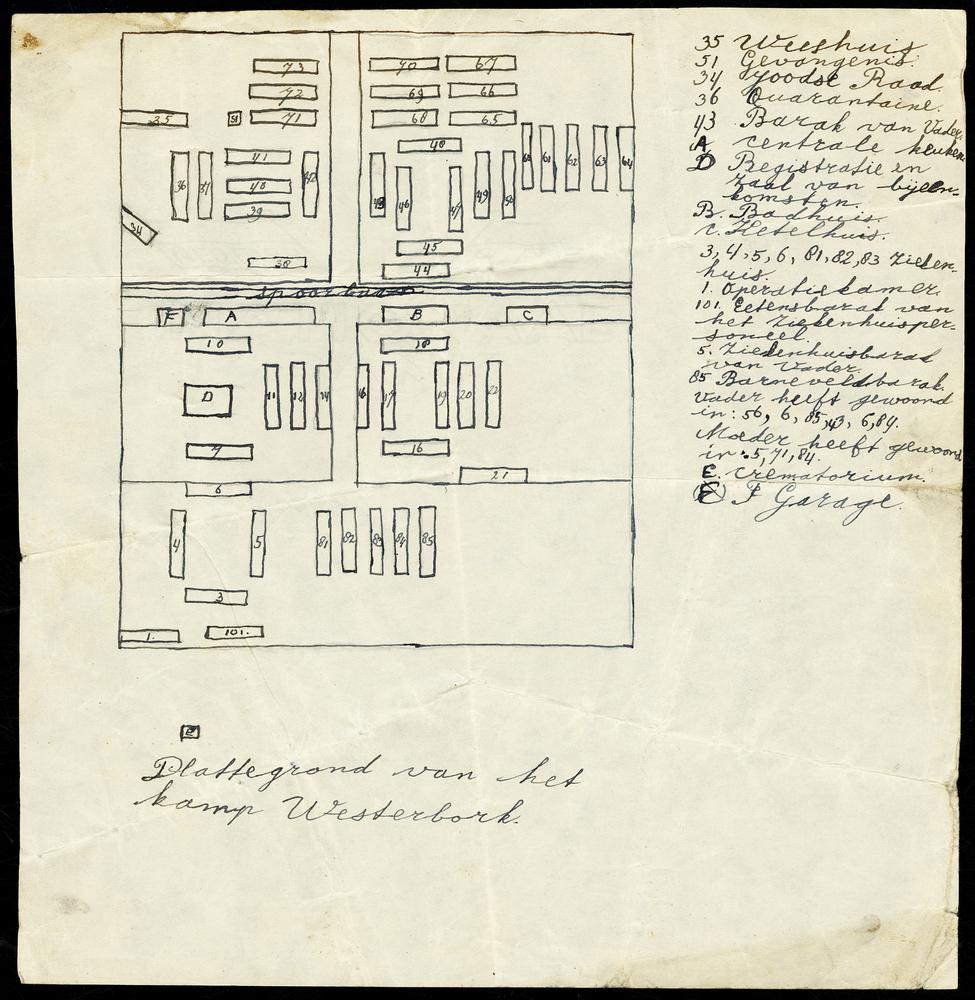 73
72
71
35
51
41
40
39
36
37
42
34
38
70
67
69
66
68
65
48
61
62
63
64
46
47
49
45
44
spoorbaan
F
A
B
C
10
18
D
11
12
14
16
17
19
20
22
7
16
21
6
4
5
81
82
83
84
85
3
1.
101.
E
Plattegrond van het
kamp Westerbork.
35 Weeshuis
51 Gevangenis.
34 Joodse Raad
36 Quarantaine.
43 Barak van Vader.
A centrale keuken
D Registratie en
zaal van bijeen-
komsten.
B. Badhuis.
C. Ketelhuis.
3, 4, 5, 6, 81, 82, 83 Zieken-
huis.
1. Operatiekamer.
101. Eetensbarak van
het Ziekenhuisper-
soneel.
5. Ziekenhuisbarak
van Vader.
85 Barneveldbarak.
Vader heeft gewoond
in: 56, 6, 85, 43, 6, 84.
Moeder heeft gewoond
in: 5, 71, 84.
E. Crematorium.
F Garage.